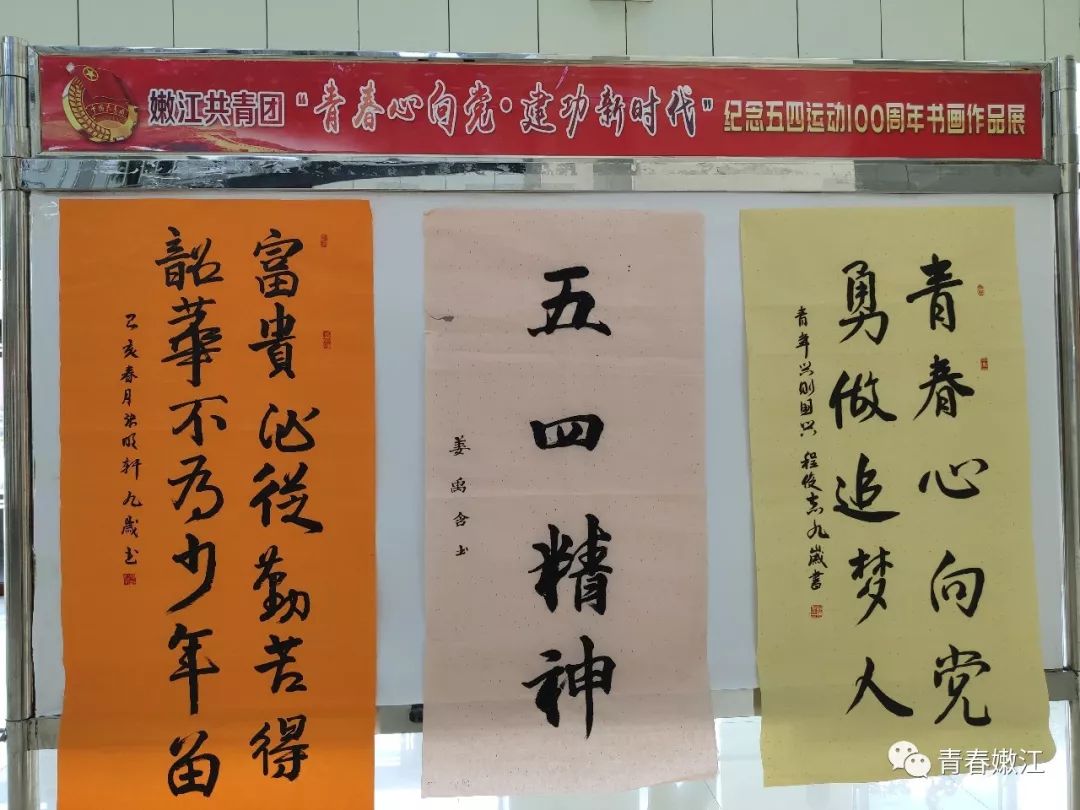 嫩江共青团“青春心向党·建功新时代”纪念五四运动100周年书画作品展
富貴必從勤苦得
韶華不为少年留
己亥春月 明轩 九歲书
五四精神
姜禹含书
青春心向党
勇做追梦人
青年兴则国兴 程俊志九歲書
青春嫩江